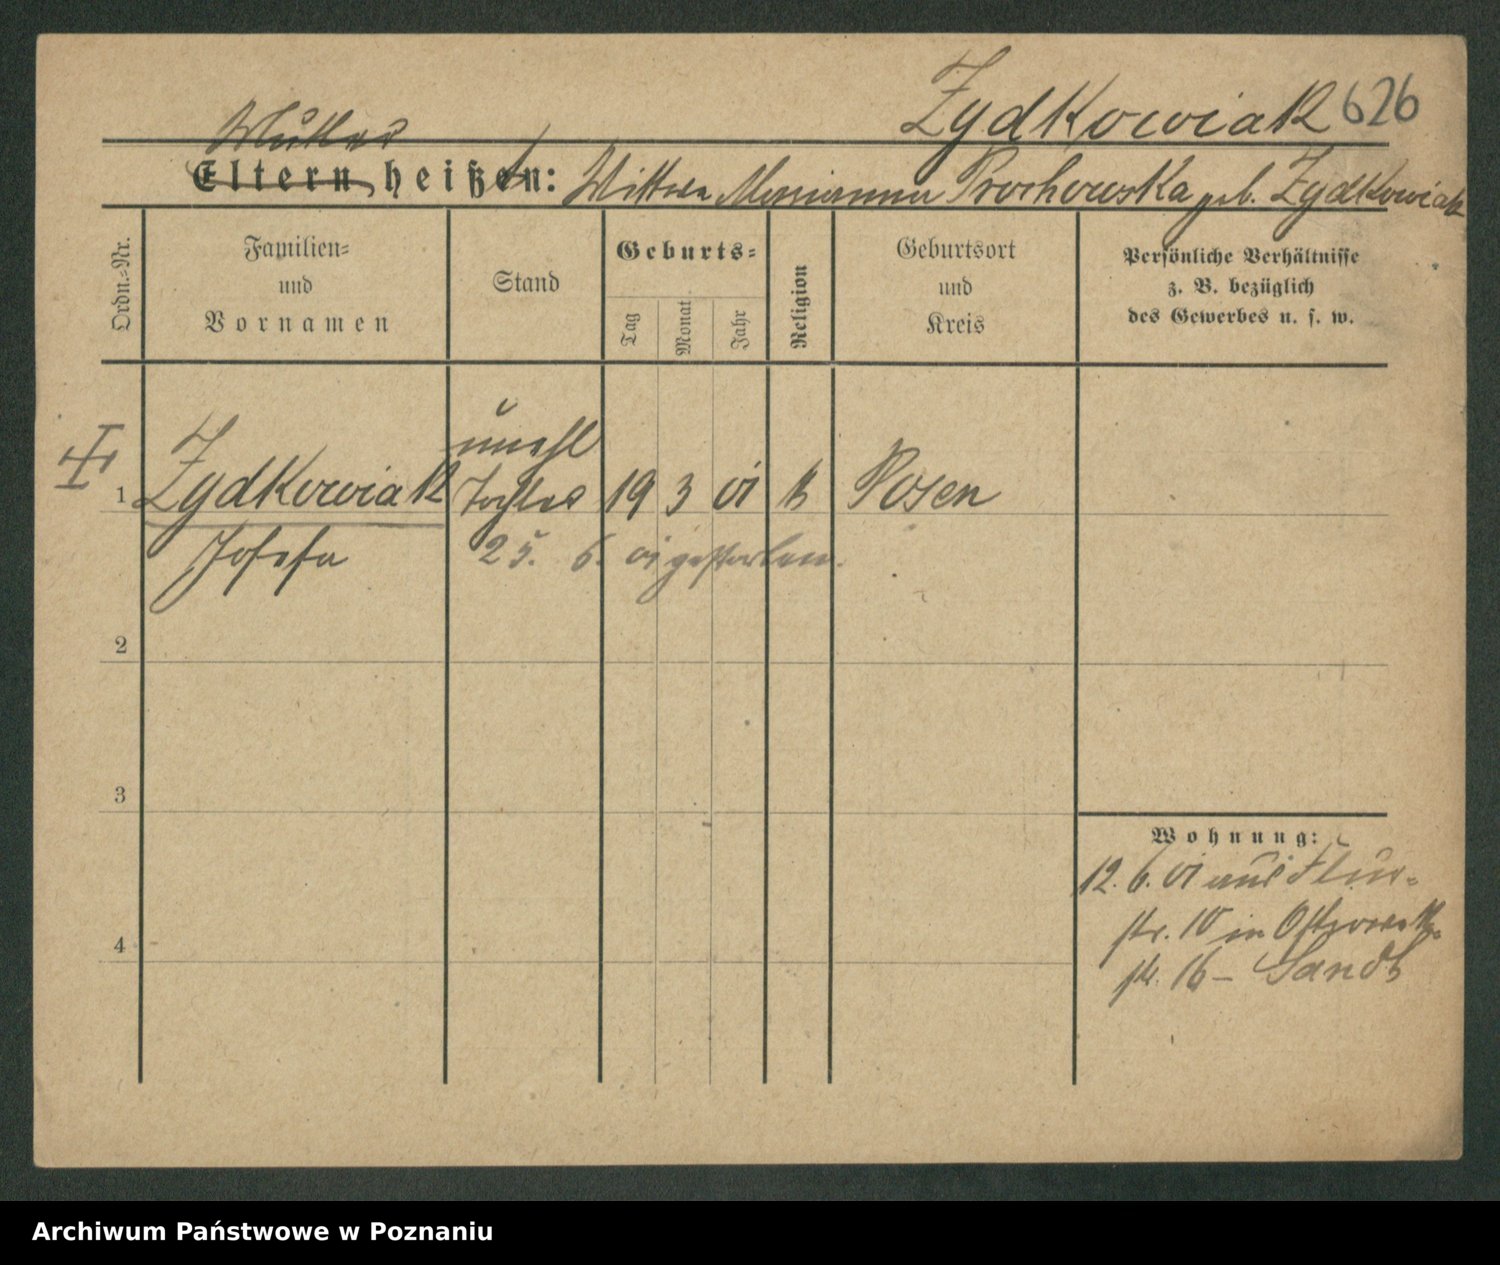 Zydkowiak 626
Mutter
Eltern heißen: Wittwe Marianna Prochowska geb. Zydkowiak
Ordn.=Nr.
Familien=
und
Vornamen
Stand
Geburts=
Tag
Monat
Jahr
Religion
Geburtsort
und
Kreis
Persönliche Verhältnisse
z. B. bezüglich
des Gewerbes u. s. w.
unehl
1 Zydkowiak Tochter 19 3 01 k Posen
Josefa 25. 6. 01 gestorben.
2
3
4
Wohnung:
12. 6. 01 aus Flur-
str. 10 in
str. 16 –
Archiwum Państwowe w Poznaniu